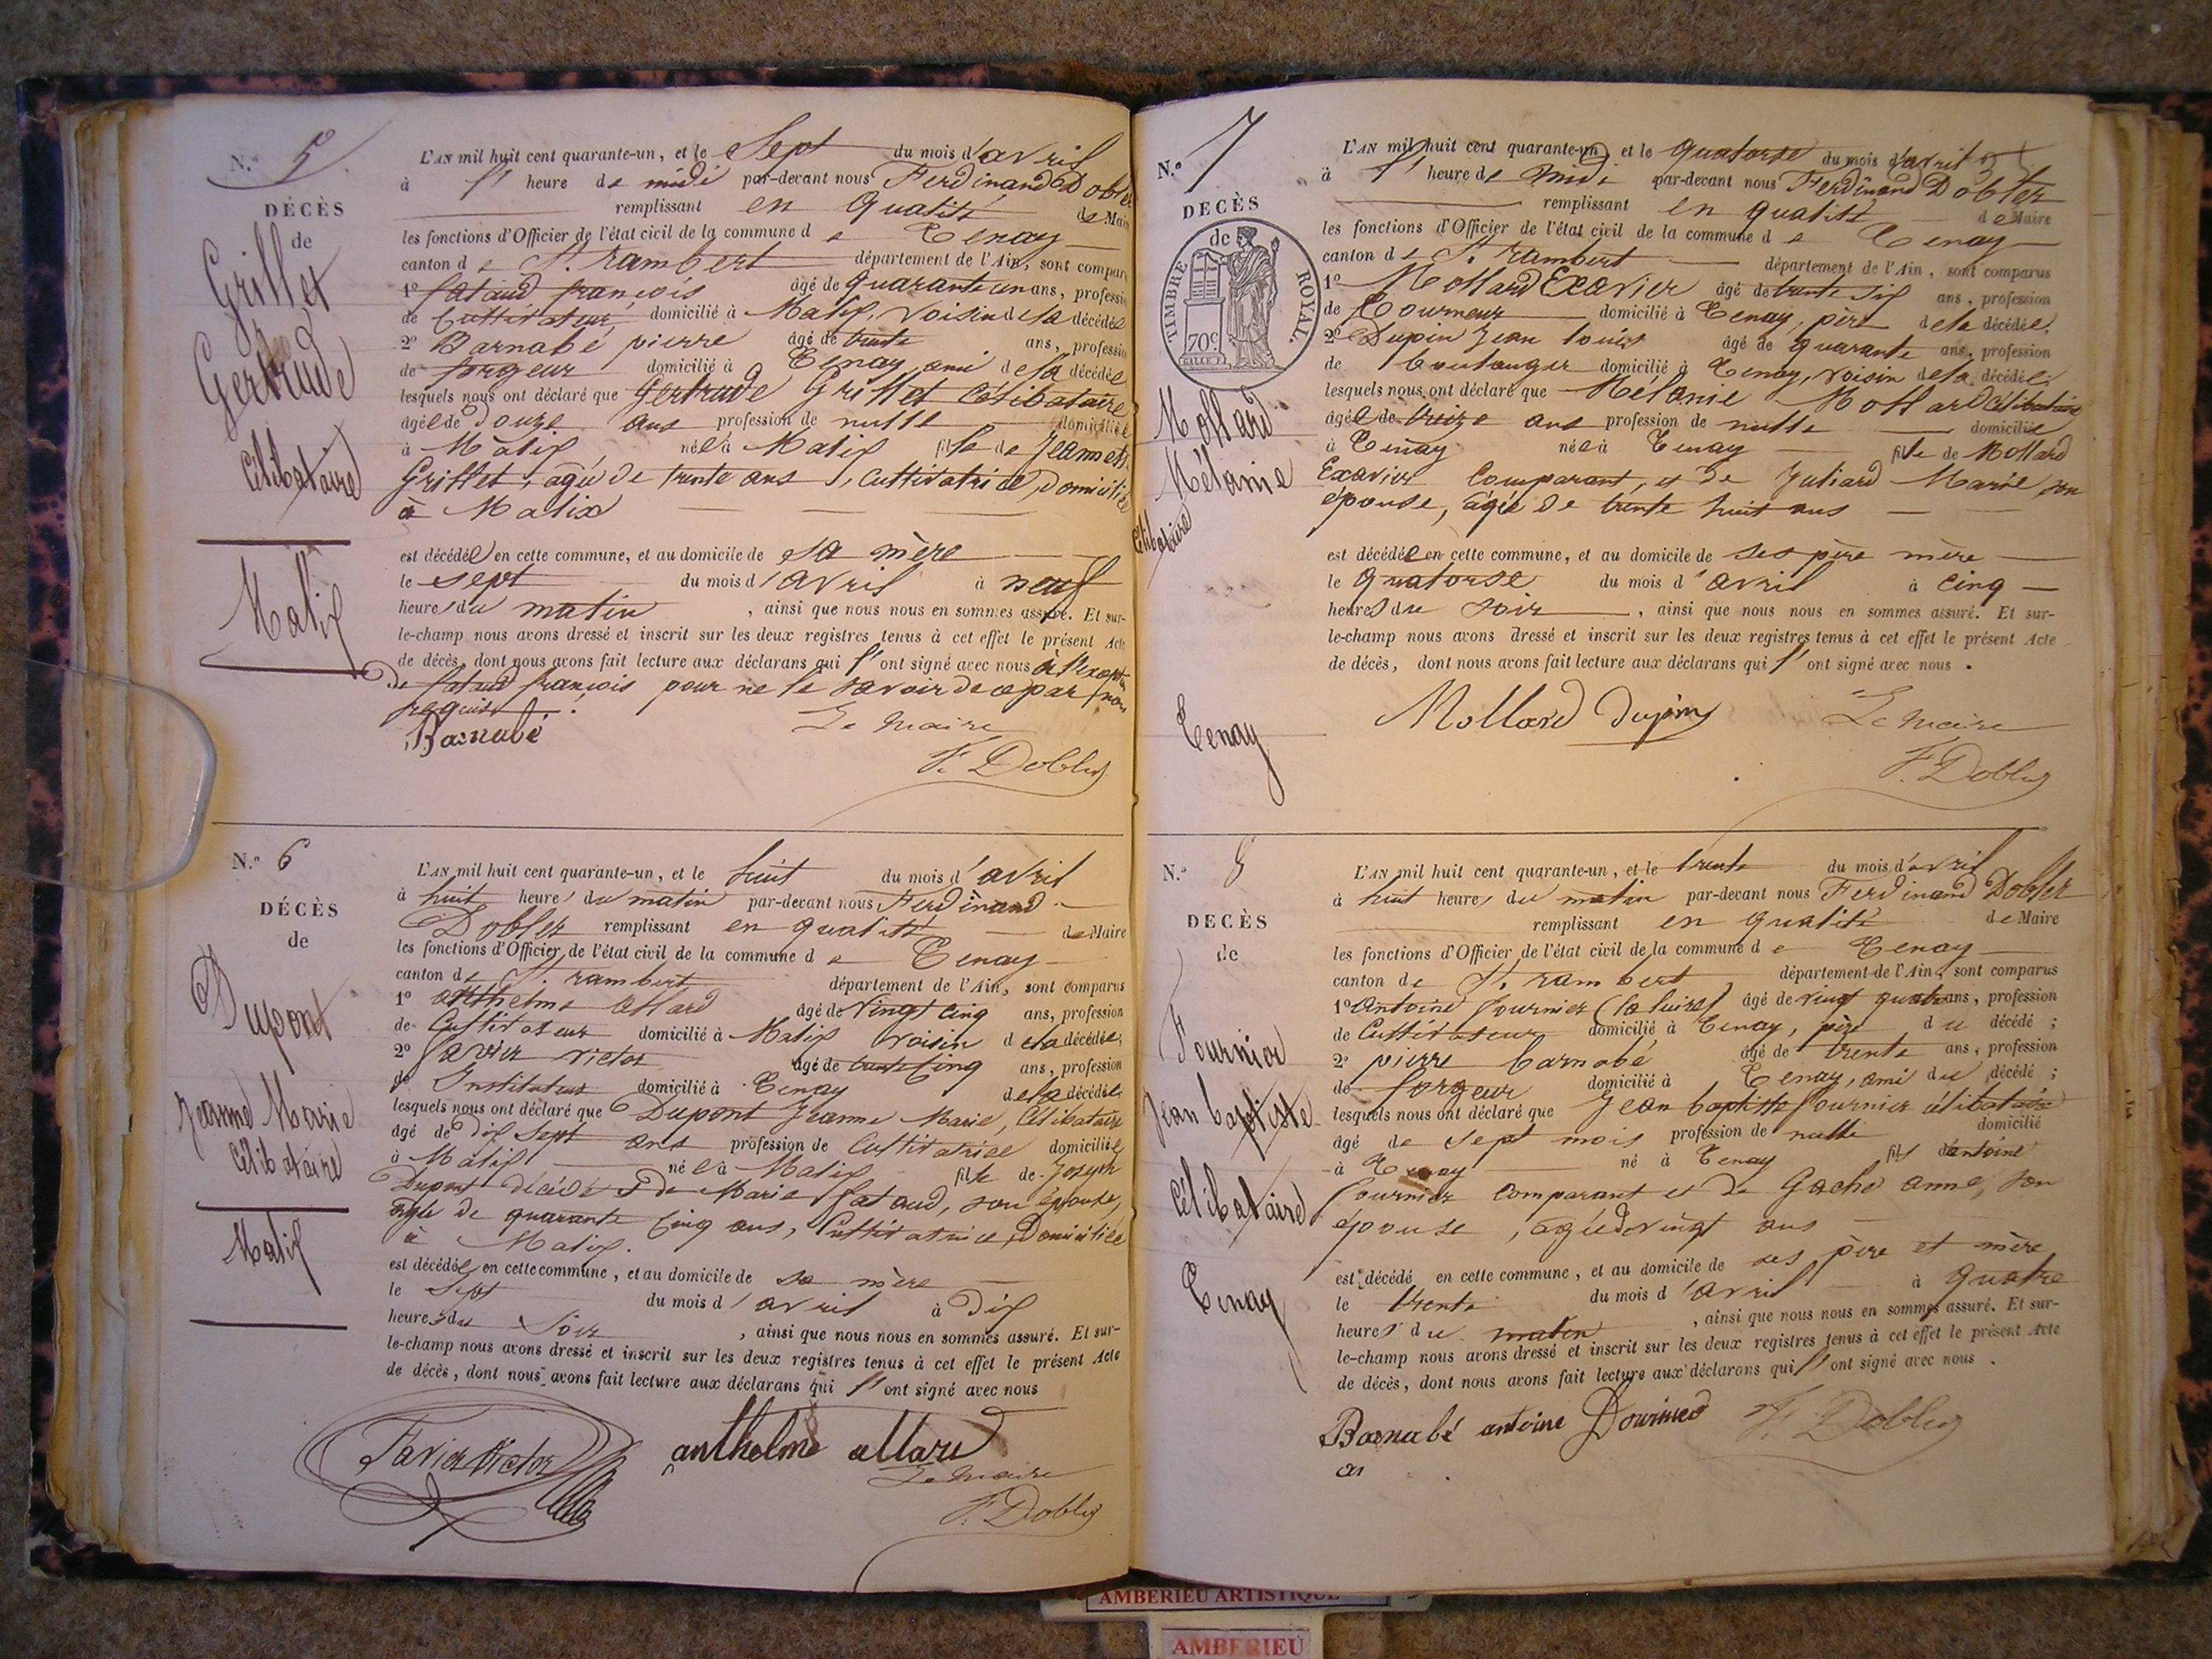 N.º 5
DÉCÈS
de
Grillet
Gertrude
Célibataire
Malix
L'AN mil huit cent quarante-un, et le Sept du mois d'avril
à 1' heure de midi par-devant nous Ferdinand Dobler
remplissant en qualité de Maire
les fonctions d'Officier de l'état civil de la commune de Tenay
canton de St. rambert département de l'Ain, sont compar
1º fataud françois âgé de quarante un ans, professi
de Cultivateur domicilié à Malix, voisin de la décédée
2º Barnabé pierre âgé de trente ans, professio
de forgeur domicilié à Tenay ami de la décédée
lesquels nous ont déclaré que Gertrude Grillet Célibataire
âgée de Douze ans profession de nulle domiciliée
à Malix, née à Malix fille de Jeannet
Grillet, agée de trente ans, Cultivatrice, Domiciliée
à Malix
est décédée en cette commune, et au domicile de sa mère
le sept du mois d'avril à neuf
heures du matin, ainsi que nous nous en sommes assuré. Et sur-
le-champ nous avons dressé et inscrit sur les deux registres tenus à cet effet le présent Acte
de décès, dont nous avons fait lecture aux déclarans qui l'ont signé avec nous à l'exception
de fataud françois pour ne le savoir de ce par nous
requis.
Barnabé
Le Maire
F. Dobler
N.º 6
DÉCÈS
de
Dupont
Jeanne Marie
Célibataire
Malix
L'AN mil huit cent quarante-un, et le huit du mois d'avril
à huit heures du matin par-devant nous Ferdinand
Dobler remplissant en qualité de Maire
les fonctions d'Officier de l'état civil de la commune de Tenay
canton de St. rambert département de l'Ain, sont comparus
1º anthelme allard âgé de vingt cinq ans, profession
de Cultivateur domicilié à Malix voisin de la décédée;
2º favier victor âgé de trente cinq ans, profession
de Instituteur domicilié à Tenay de la décédée
lesquels nous ont déclaré que Dupont Jeanne Marie, Célibataire
âgé de dix sept ans profession de Cultivatrice domiciliée
à Malix née à Malix fille de Joseph
Dupont décédé & de Marie fataud, son épouse,
agée de quarante cinq ans, Cultivatrice, Domiciliée
à Malix.
est décédée en cette commune, et au domicile de sa mère
le sept du mois d'avril à dix
heures du soir, ainsi que nous nous en sommes assuré. Et sur-
le-champ nous avons dressé et inscrit sur les deux registres tenus à cet effet le présent Acte
de décès, dont nous avons fait lecture aux déclarans qui l'ont signé avec nous
Favier Victor
anthelme allard
Le Maire
F. Dobler
N.º 7
DÉCÈS
de
TIMBRE ROYAL
70c
Mollard
Mélanie
Célibataire
Tenay
L'AN mil huit cent quarante-un, et le quatorse du mois d'avril
à 1' heure de midi par-devant nous Ferdinand Dobler
remplissant en qualité de Maire
les fonctions d'Officier de l'état civil de la commune de Tenay
canton de St. rambert département de l'Ain, sont comparus
1º Mollard Exavier âgé de trente six ans, profession
de Tourneur domicilié à Tenay, père de la décédée;
2º Dupin Jean louis âgé de quarante ans, profession
de boulanger domicilié à Tenay, voisin de la décédée;
lesquels nous ont déclaré que Mélanie Mollard Célibataire
âgée de treize ans profession de nulle domiciliée
à Tenay née à Tenay fille de Mollard
Exavier Comparant, et de Juliard Marie son
épouse, agée de trente huit ans
est décédée en cette commune, et au domicile de ses père mère
le quatorse du mois d'avril à cinq
heures du soir, ainsi que nous nous en sommes assuré. Et sur-
le-champ nous avons dressé et inscrit sur les deux registres tenus à cet effet le présent Acte
de décès, dont nous avons fait lecture aux déclarans qui l'ont signé avec nous.
Mollard Dupin
Le Maire
F. Dobler
N.º 8
DÉCÈS
de
Fournier
Jean baptiste
Célibataire
Tenay
L'AN mil huit cent quarante-un, et le trente du mois d'avril
à huit heures du matin par-devant nous Ferdinand Dobler
remplissant en qualité de Maire
les fonctions d'Officier de l'état civil de la commune de Tenay
canton de St. rambert département de l'Ain, sont comparus
1º Antoine fournier âgé de vingt quatre ans, profession
de Cultivateur domicilié à Tenay, père du décédé;
2º pierre barnabé âgé de trente ans, profession
de forgeur domicilié à Tenay, ami du décédé;
lesquels nous ont déclaré que Jean baptiste fournier célibataire
âgé de sept mois profession de nulle domicilié
à Tenay né à Tenay fils d'antoine
fournier comparant et de Gache anne, son
épouse, agée de vingt ans
est décédé en cette commune, et au domicile de ses père et mère
le trente du mois d'avril à quatre
heures du matin, ainsi que nous nous en sommes assuré. Et sur-
le-champ nous avons dressé et inscrit sur les deux registres tenus à cet effet le présent Acte
de décès, dont nous avons fait lecture aux déclarans qui l'ont signé avec nous.
Barnabé antoine
F. Dobler
AMBERIEU ARTISTIQUE
AMBERIEU